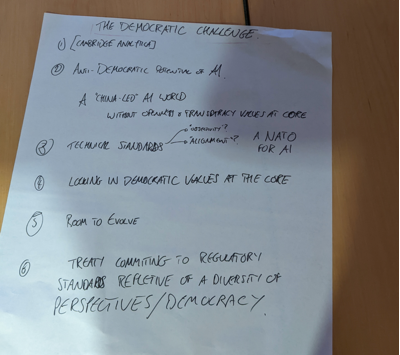 THE DEMOCRATIC CHALLENGE
1) [CAMBRIDGE ANALYTICA]
2) ANTI-DEMOCRATIC POTENTIAL OF AI.
A "CHINA-LED" AI WORLD
WITHOUT OPENNESS & TRANSPARENCY VALUES AT CORE
3) TECHNICAL STANDARDS
"ALIGNMENT"?
A NATO FOR AI
4) LOCKING IN DEMOCRATIC VALUES AT THE CORE
5) ROOM TO EVOLVE
6) TREATY COMMITING TO REGULATORY
STANDARDS REFLETIVE OF A DIVERSITY OF
PERSPECTIVES/DEMOCRACY.